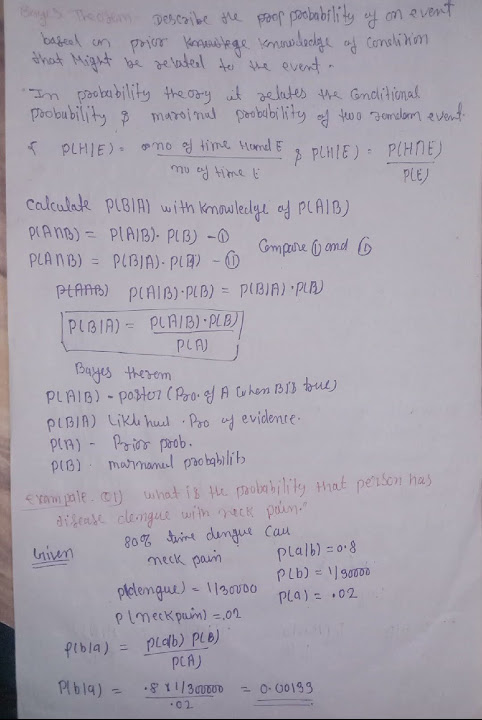 Bayes Theorem Describe the prof probability of an event
based on prior knowlege knowledge of Condition
that Might be related to the event.
In probability theory it relates the Conditional
probability & marginal probability of two random event.
P(H/E) = no of time H and E / no of time E & P(H/E) = P(H∩E) / P(E)
Calculate P(B|A) with knowledge of P(A|B)
P(A∩B) = P(A|B)·P(B) - ①
P(A∩B) = P(B|A)·P(B) - ⑪ Compare ① and ⑪
P(A|B)·P(B) = P(B|A)·P(B)
P(B|A) = P(A|B)·P(B) / P(A)
Bayes therom
P(A|B) - postor (Pro. of A when B is true)
P(B|A) Likhihud. Pro of evidence.
P(A) - Prior prob.
P(B). marnamal probability
Exampale. Q1) what is the probability that person has
disease dengue with neck pain.
Given 80% time dengue Cau
neck pain P(a/b) = 0.8
P(dengue) = 1/30000 P(b) = 1/30000
P(neckpain) = .02 P(a) = .02
P(b/a) = P(a/b) P(B) / P(A)
P(b/a) = .8 x 1/300000 / .02 = 0.00133